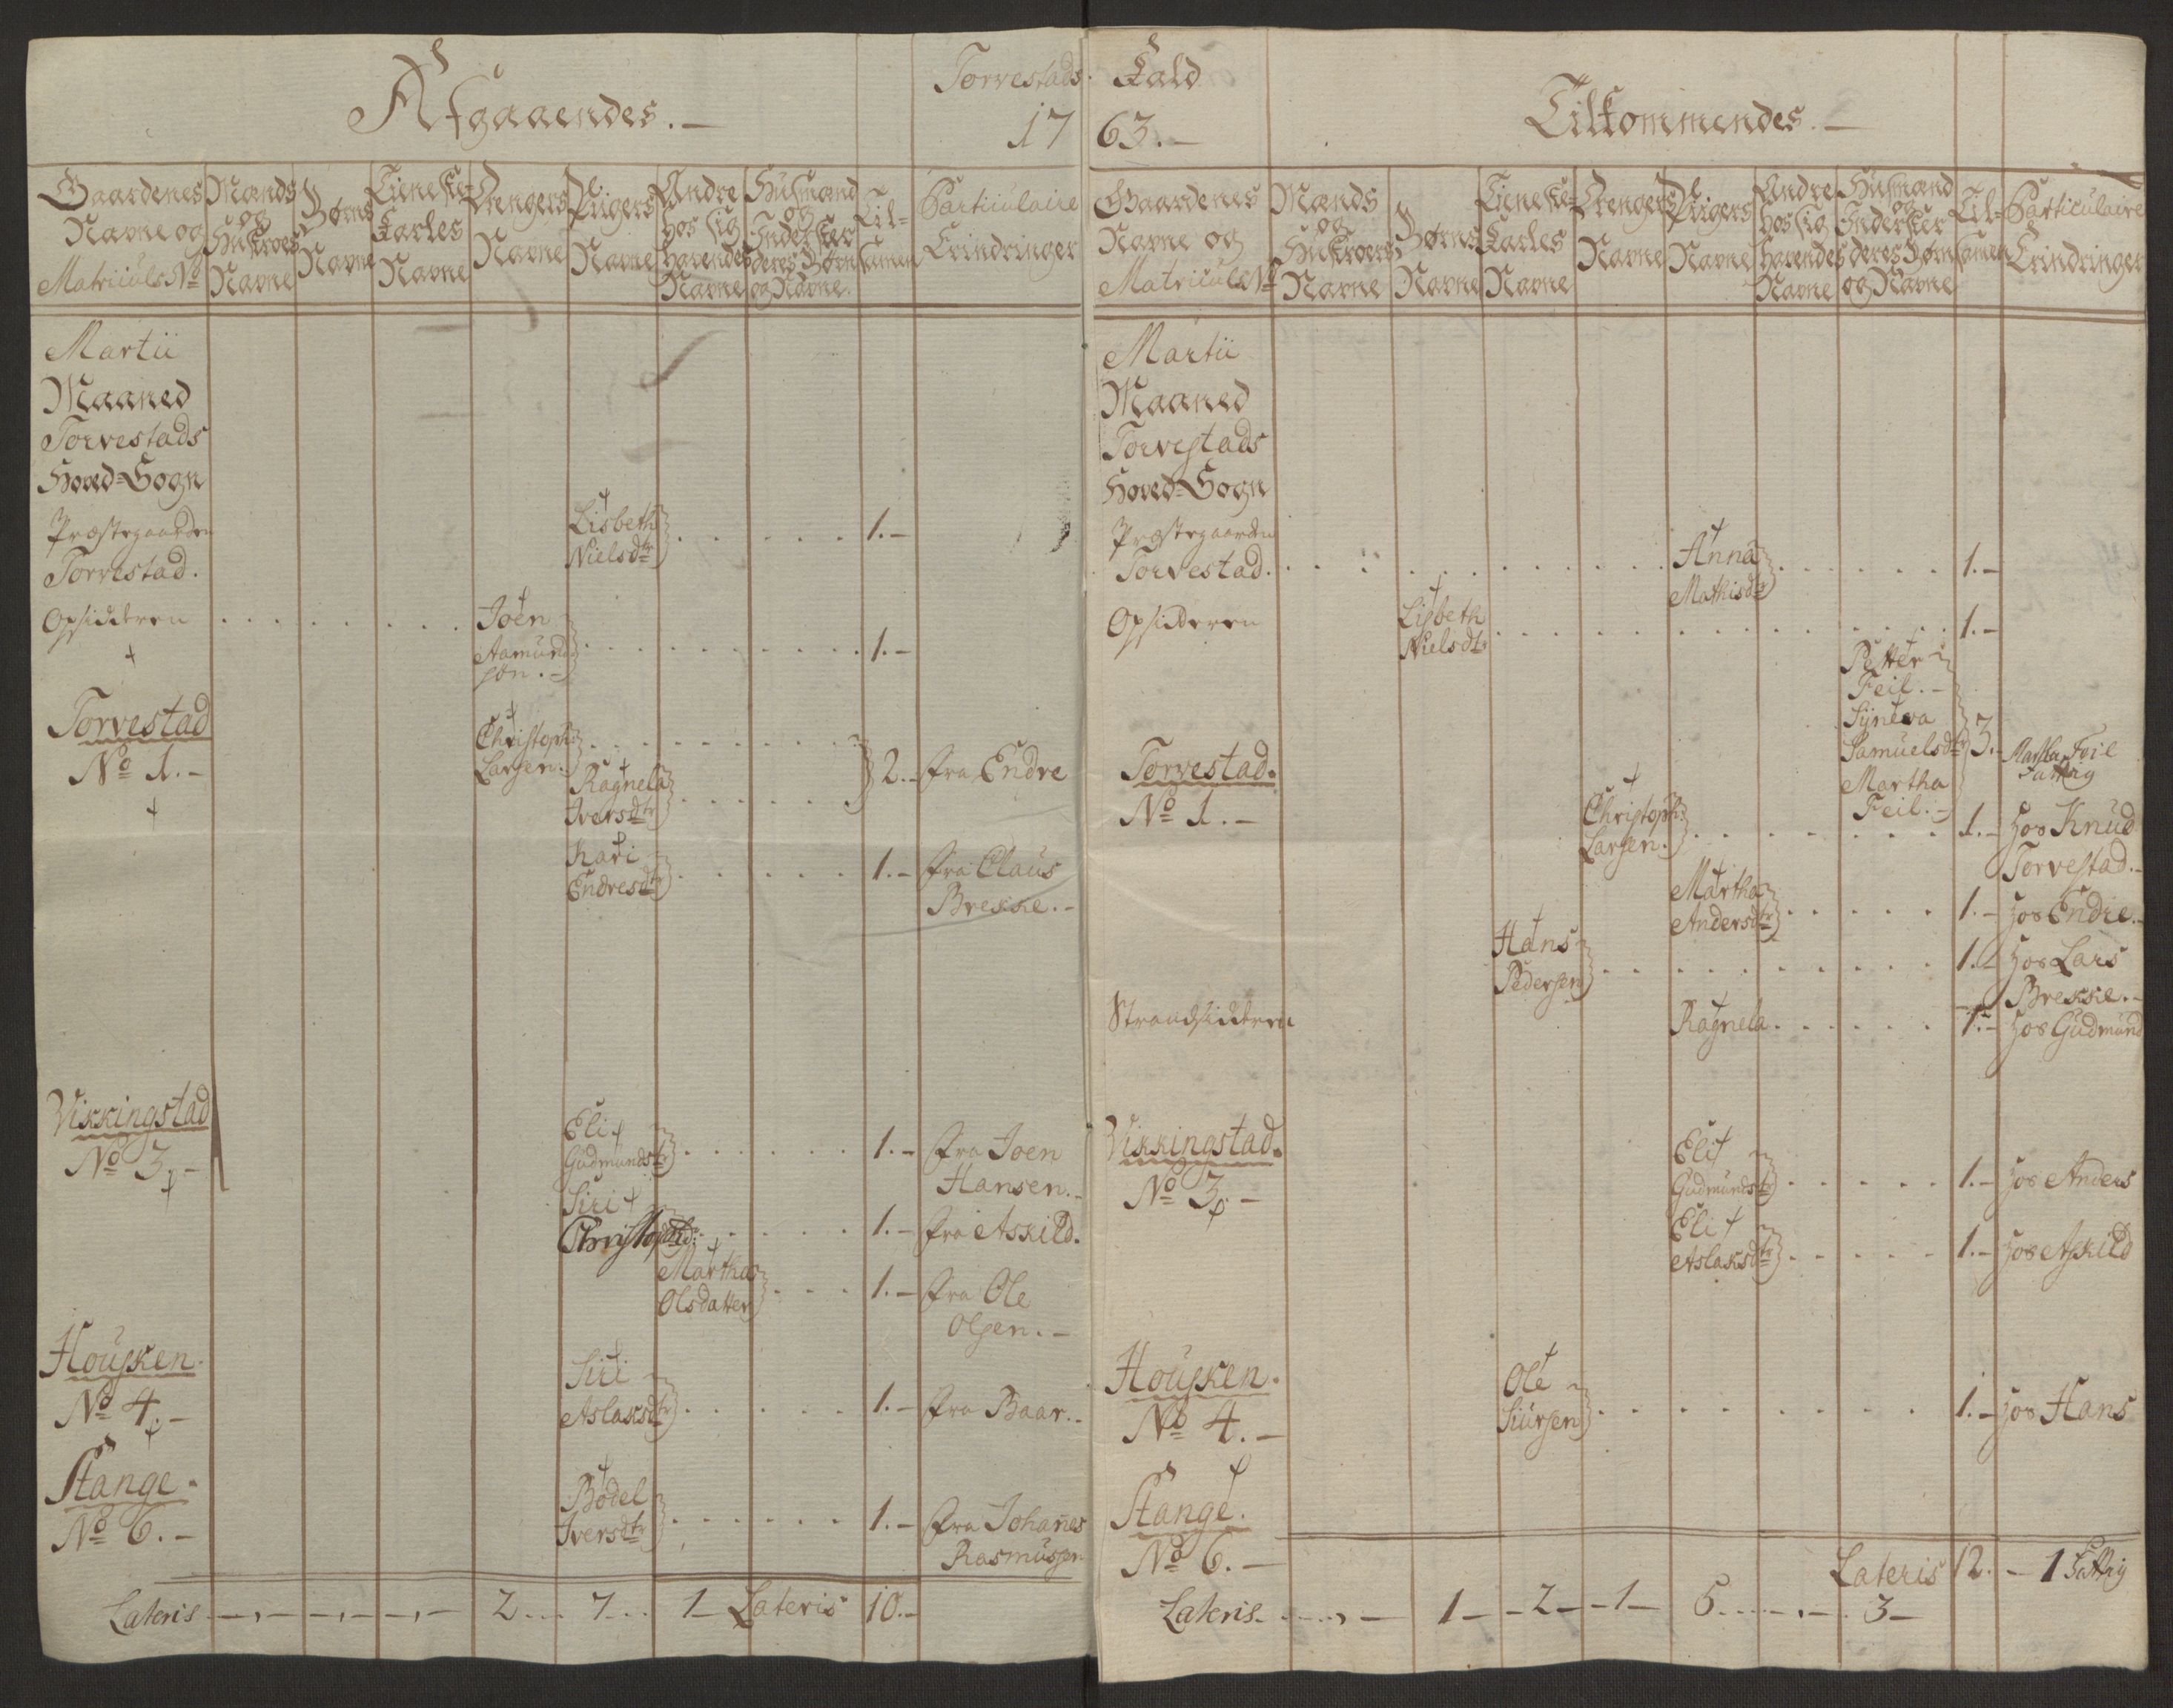 Afgaaendes.
Torvestads
17
Gaardenes Navne og Matriculs No
Mænds og Hustroes Navne
Børns Navne
Tieneste-Karles Navne
Drengers Navne
Pigers Navne
Andre hos sig havendes Navne
Husmænd og Inderster deres Børn og Navne.
Til-samen
Particulaire Erindringer
Martii
Maaned
Torvestads
Hoved-Sogn
Præstegaarden
Lisbeth
Nielsdtr . . . . . 1.-
Torvestad.
Opsidderen . . . . . Joen
Aamund-
søn.- . . . . . 1.-
Torvestad
No 1.-
Christoph:
Larsen. . . . . .
Ragnela
Iversdtr . . . . . 2.- fra Endre
Kari
Endresdtr . . . . . 1.- fra Claus
Brekke.-
Vikkingstad
No 3.-
Eli
Gudmundsdtr . . . . . 1.- fra Joen
Hansen.-
Siri
Christophdtr: . . . . . 1.- fra Askild.
Martha
Olsdatter . . . 1.- fra Ole
Olsen.-
Housken.
No 4.-
Siri
Aslaksdtr . . . . . 1.- fra Baar.-
Stange.
No 6.-
Bodel
Iversdtr . . . . . 1.- fra Johanes
Rasmussen
Lateris -,- -,- -,- 2... 7... 1- Lateris 10.-
Kald
63.-
Tilkommendes.-
Gaardenes Navne og Matriculs No
Mænds og Hustroers Navne
Børns Navne
Tieneste-Karles Navne
Drengers Navne
Pigers Navne
Andre hos sig havendes Navne
Husmænd og Inderster deres Børn og Navne
Til-samen
Particulaire Erindringer
Martii
Maaned
Torvestads
Hoved-Sogn
Præstegaarden
Torvestad. . . . . . Anna
Mathisdtr . . . . . 1.-
Opsidderen
Lisbeth
Nielsdtr . . . . . 1.-
Petter
Feil.-
Syneva
Samuelsdtr 3.- Martha Feil
Fattig
Martha
Feil.-
Torvestad.
No 1.-
Christoph:
Larsen. . . . . . 1.- hos Knud
Torvestad.-
Martha
Andersdtr . . . . . 1.- hos Endre.-
Hans
Pedersen . . . . . 1.- hos Lars
Brekke.-
Strandsidderen
Ragnela . . . . . 1.- hos Gudmund
Vikkingstad.
No 3.-
Eli
Gudmundsdtr . . . . . 1.- hos Anders
Eli
Aslaksdtr . . . . . 1.- hos Askild
Housken.
No 4.-
Ole
Siursen . . . . . 1.- hos Hans
Stange.
No 6.-
Lateris 12.- 1 Fattig
Lateris. ...,- 1- -2- -1- 5... -,- 3-